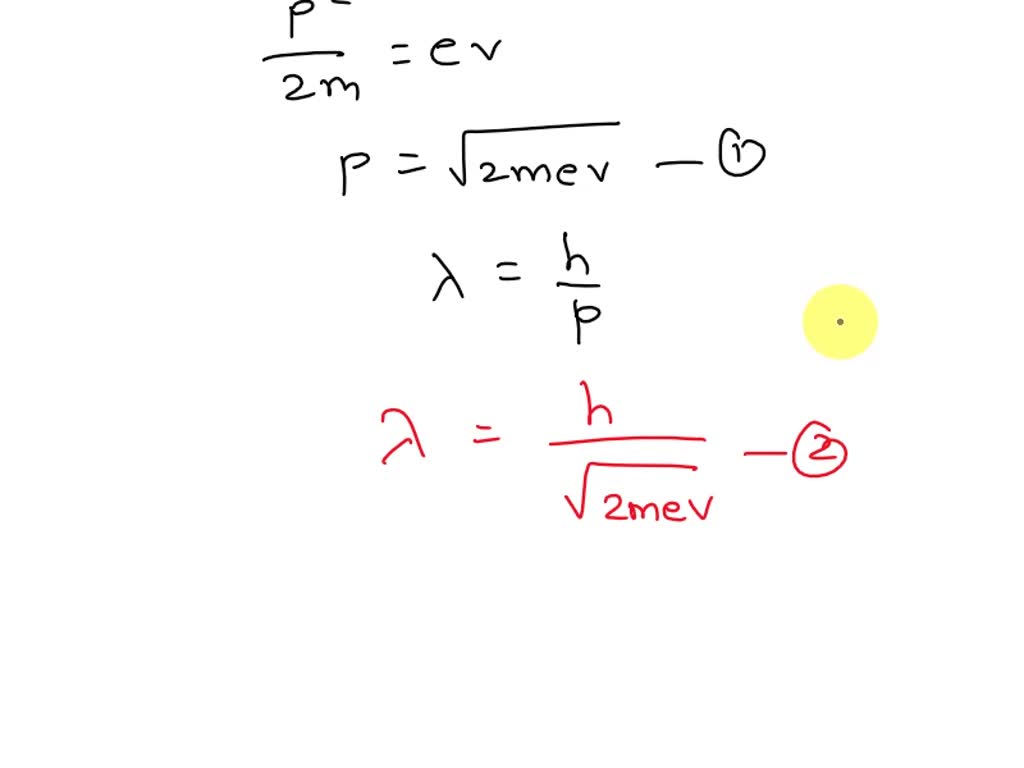 p²/2m = ev
p = √2mev — ①
λ = h/p
λ = h/√2mev — ②